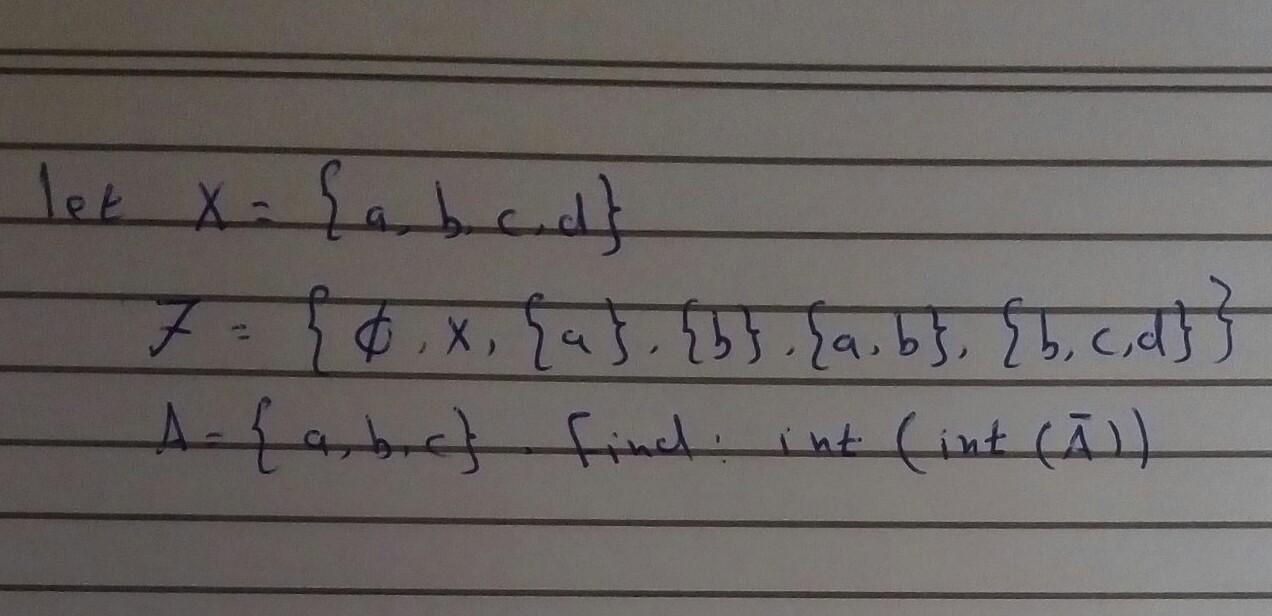 let X = {a, b, c, d}
T = {ϕ, X, {a}, {b}, {a, b}, {b, c, d}}
A = {a, b, c}. find: int (int (Ā))